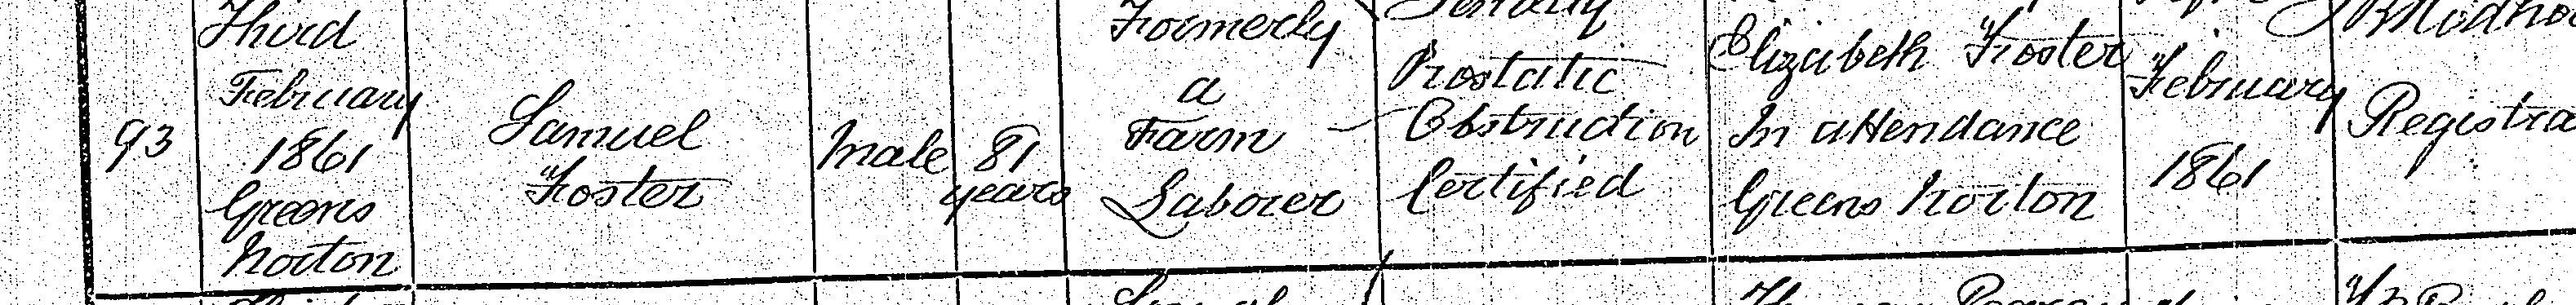 Third
February
1861
Greens
Norton
93
Samuel
Foster
Male
81
years
Formerly
a
Farm
Laborer
Prostatic
Obstruction
Certified
Elizabeth Foster
In attendance
Greens Norton
February
1861
Registrar